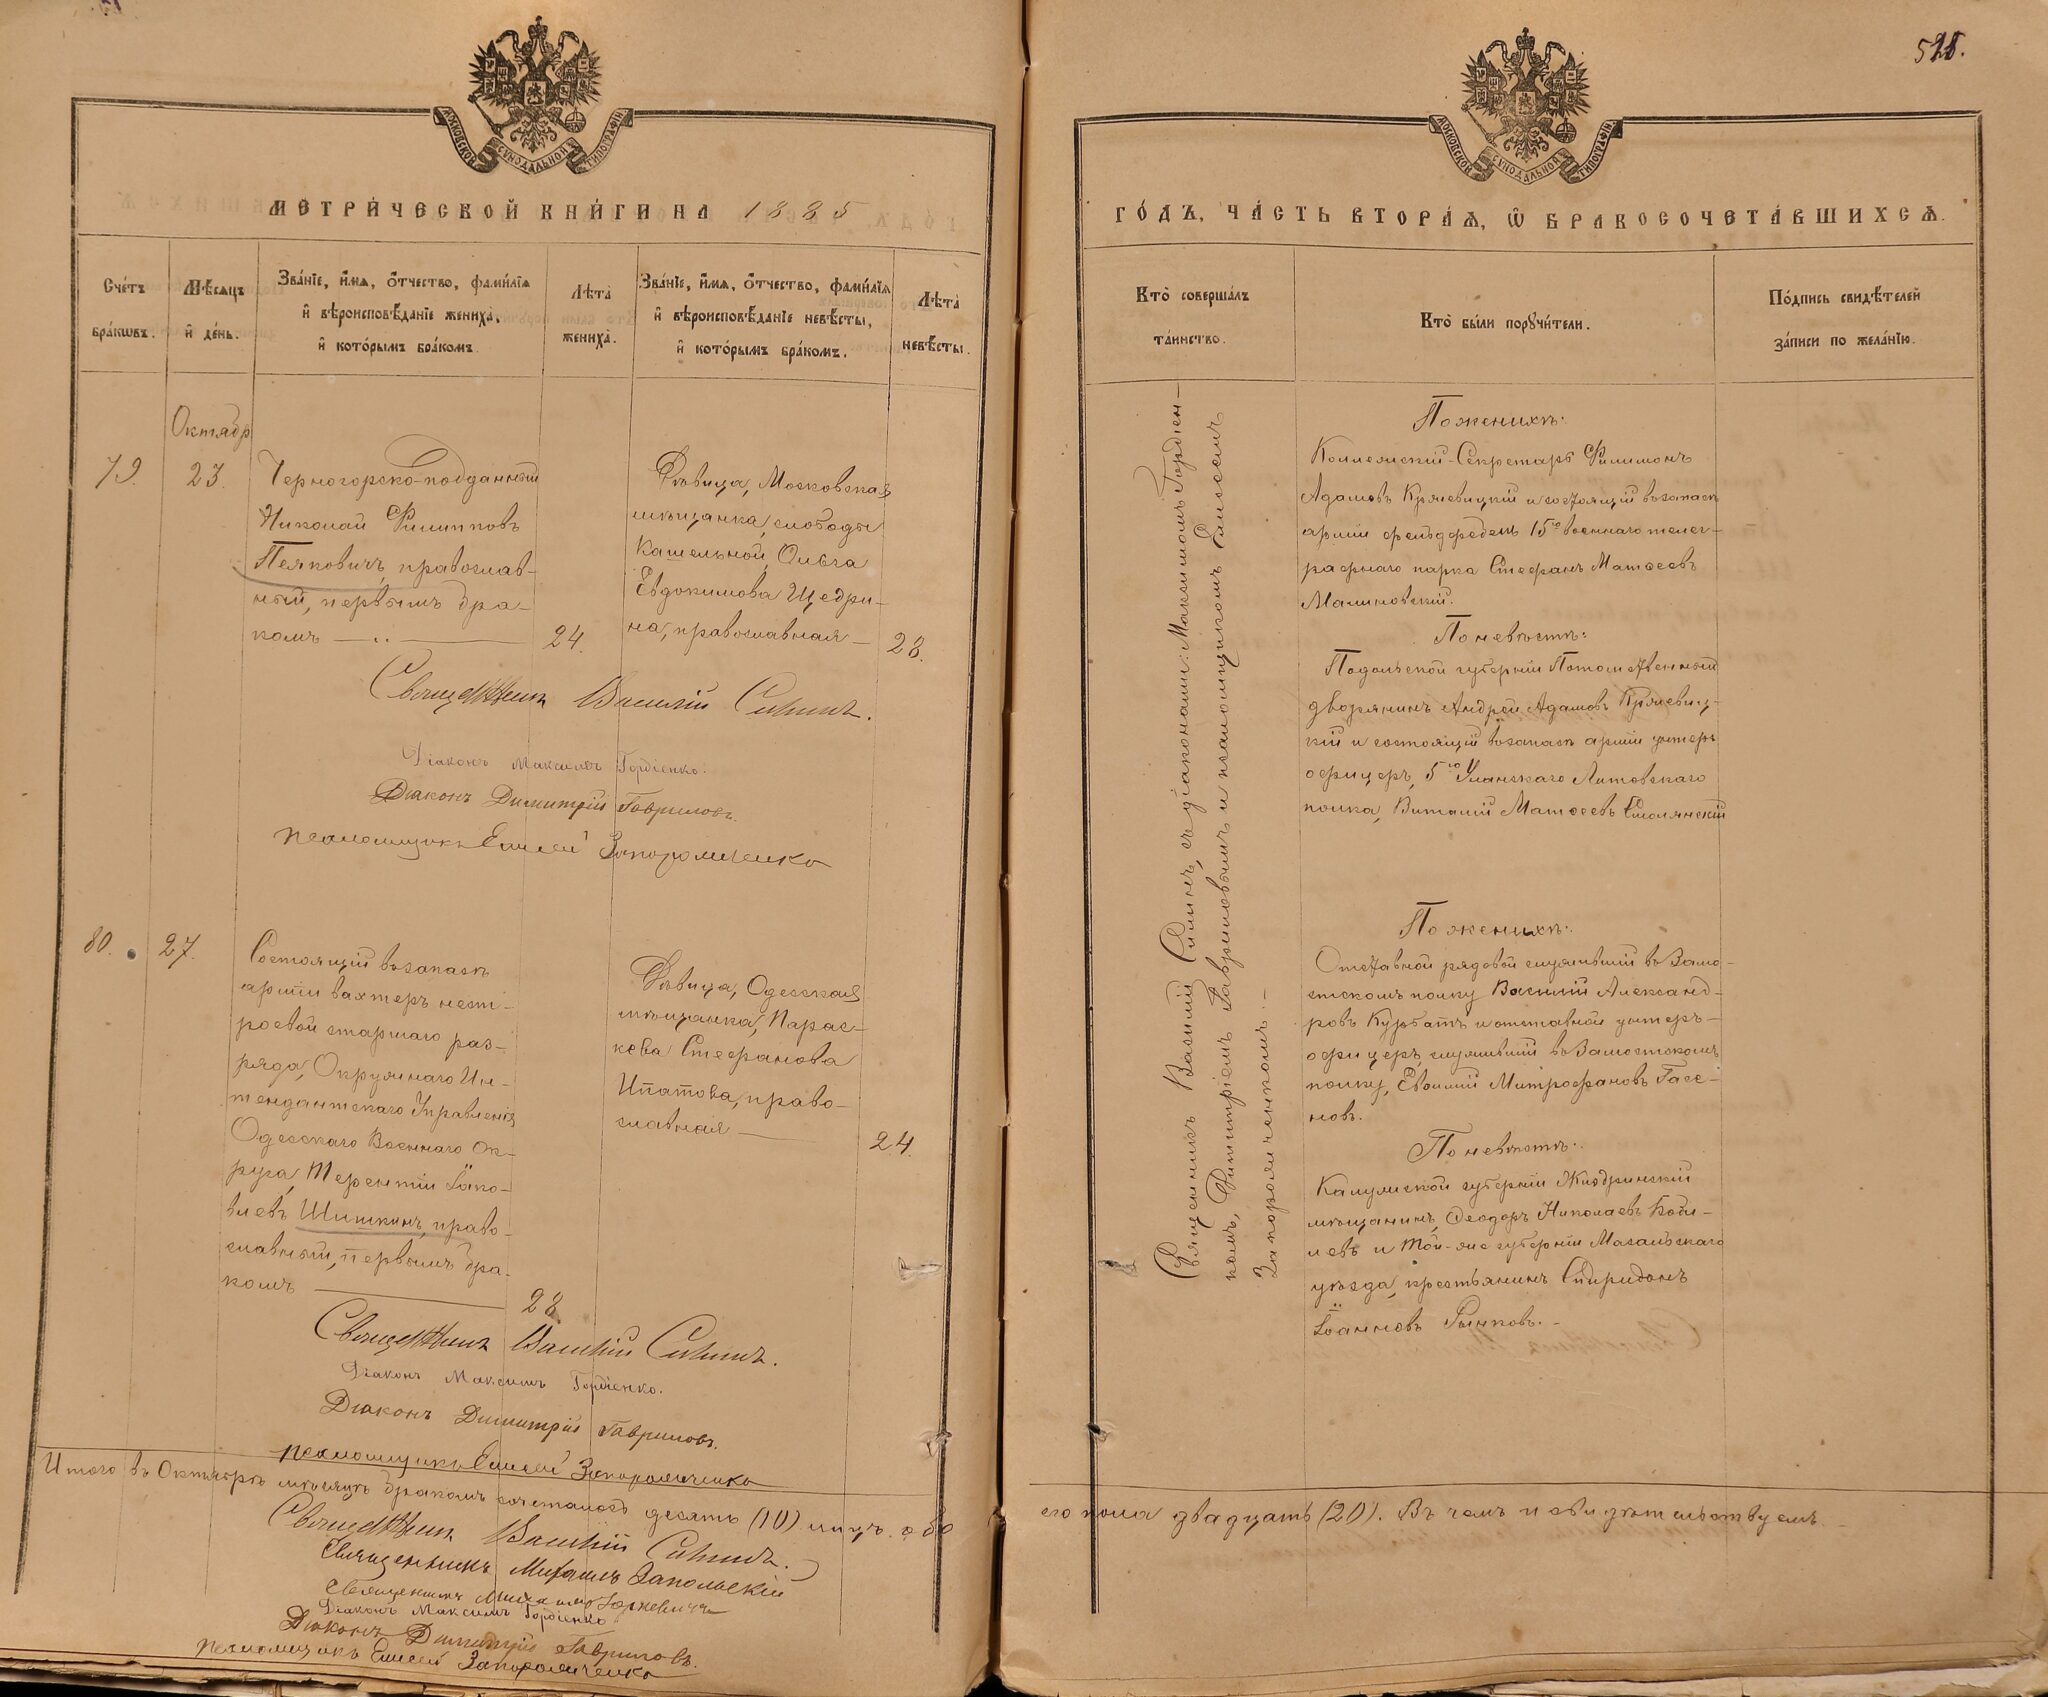 МОСКОВСКОЙ СѴНОДАЛЬНОЙ ТИПОГРАФІИ
МЕТРИ́ЧЕСКОЙ КНИ́ГИ НА 1885
Сче́тъ бра́кωвъ.
Мѣ́сяцъ и҆ де́нь.
Зва́нїе, и҆́мѧ, ѻ҆́тчество, фами́лїѧ
и҆ вѣроисповѣ́данїе жениха̀,
и҆ кото́рымъ бра́комъ.
Лѣ́та жениха̀.
Зва́нїе, и҆́мѧ, ѻ҆́тчество, фами́лїѧ
и҆ вѣроисповѣ́данїе невѣ́сты,
и҆ кото́рымъ бра́комъ.
Лѣ́та невѣ́сты.
Октябр
79.
23.
Черногорско-подданный
Николай Филиповъ
Пеяковичъ, православ-
ный, первымъ бра-
комъ
24.
Дѣвица, Московская
мѣщанка, слободы
Кашельной, Ольга
Евдокимова Щедри-
на, православная
23.
Священникъ Василій Силинъ.
Діаконъ Максимъ Гордіенко.
Діаконъ Димитрій Гавриловъ.
псаломщикъ Елисей Запорожченко
80.
27.
Состоящій въ запасѣ
арміи вахтеръ нест-
роевой старшаго раз-
ряда, Окружнаго Ин-
тендантскаго Управленія
Одесскаго Военнаго Ок-
руга, Терентій Іако-
влевъ Шишкинъ, право-
славный, первымъ бра-
комъ
28.
Дѣвица, Одесская
мѣщанка, Парас-
кева Стефанова
Ипатова, право-
славная
24.
Священникъ Василій Силинъ.
Діаконъ Максимъ Гордіенко.
Діаконъ Димитрій Гавриловъ.
псаломщикъ Елисей Запорожченко
Итого въ Октябрѣ мѣсяцѣ бракомъ сочеталось десять (10) лицъ обо
Священникъ Василій Силинъ.
Священникъ Михаилъ Запольскій
Священникъ Михаилъ
Діаконъ Максимъ Гордіенко
Діаконъ Димитрій Гавриловъ.
псаломщикъ Елисей Запорожченко
МОСКОВСКОЙ СѴНОДАЛЬНОЙ ТИПОГРАФІИ
ГО́ДЪ, ЧА́СТЬ ВТОРА́Ѧ, Ѽ БРАКОСОЧЕТА́ВШИХСѦ.
Кто̀ соверша́лъ
та́инство.
Кто̀ бы́ли порꙋчи́тели.
По́дпись свидѣ́телей
за́писи по жела́нїю.
Священникъ Василій Силинъ, съ діаконами: Максимомъ Гордіен-
комъ, Димитріемъ Гавриловымъ и псаломщикомъ Елисеемъ
Запорожченкомъ.
По женихѣ:
Коллежскій Секретарь Филимонъ
Адамовъ Кряжевицкій и состоящій въ запасѣ
арміи фельдфебель 15го военнаго телег-
рафнаго парка Стефанъ Матѳеевъ
Малиновскій.
По невѣстѣ:
Подольской губерніи Потомственный
дворянинъ Андрей Адамовъ Кряжевиц-
кій и состоящій въ запасѣ арміи унтеръ
офицеръ, 5го Уланскаго Литовскаго
полка, Виталій Матѳеевъ Смолянскій
По женихѣ:
Отставной рядовой служившій въ Замо-
стскомъ полку Василій Александ-
ровъ Курбатъ и отставной унтеръ-
офицеръ, служившій въ Замостскомъ
полку, Евѳимій Митрофановъ Гасе-
новъ.
По невѣстѣ:
Калужской губерніи Жиздринскій
мѣщанинъ, Ѳеодоръ Николаевъ Кобы-
левъ и той-же губерніи Мосальскаго
уѣзда, крестьянинъ Спиридонъ
Іоанновъ Рынковъ.
его пола двадцать (20). Въ чемъ и свидѣтельствуемъ.